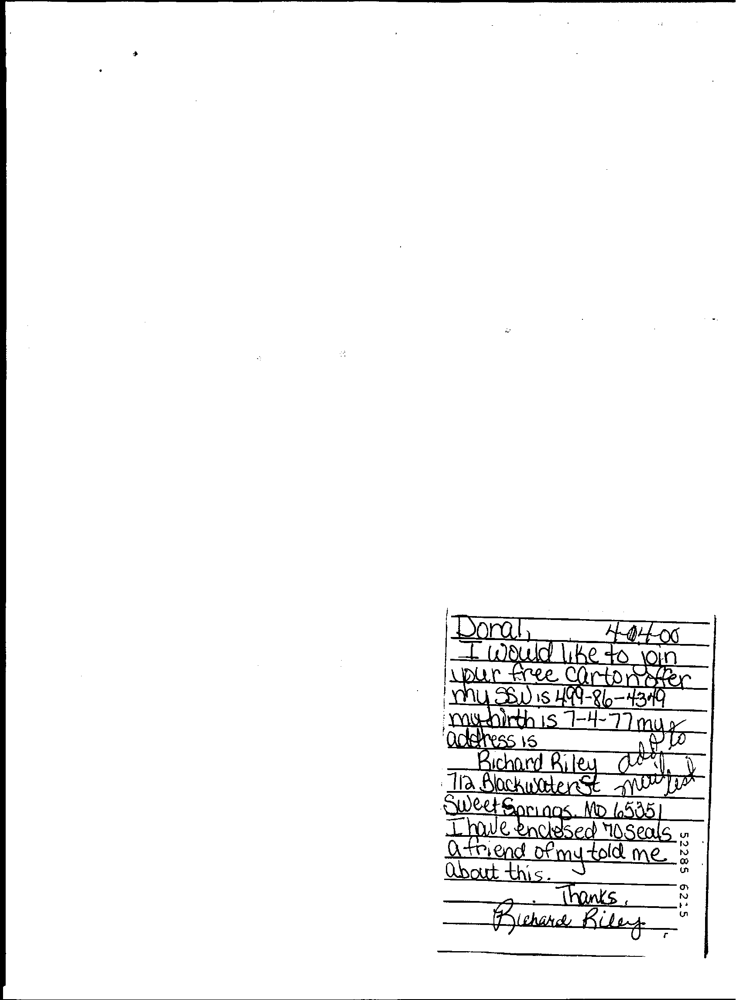 Doral, 4-04-00
I would like to join
your free carton offer
my SSN is 499-86-4349
my birth is 7-4-77 my
address is
Richard Riley
712 Blackwater St
Sweet Springs, MO 65351
add to
mail list
I have enclosed 70 seals
a friend of my told me
about this.
Thanks,
Richard Riley
52285 6215